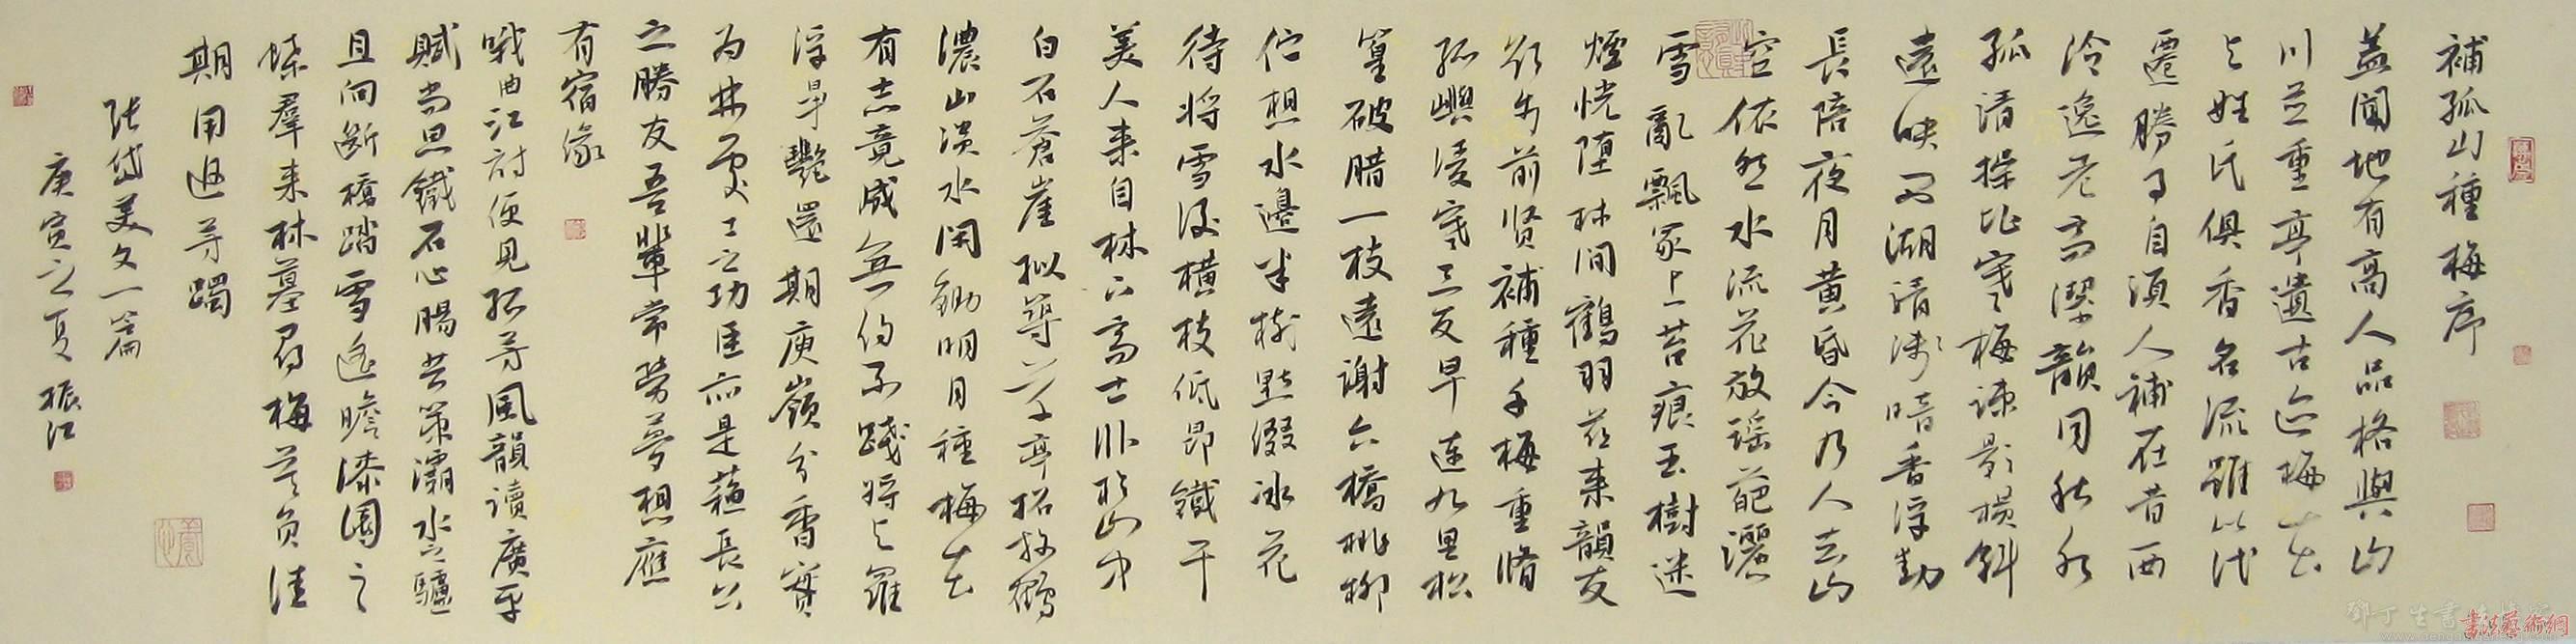 補孤山種梅序
蓋聞地有高人品格與山
川並重亭遺古迹梅花
与姓氏俱香名流雖以代
遷勝事自須人補在昔西
泠逸老高潔韻同秋水
孤清操比寒梅疎影橫斜
遠映西湖清淺暗香浮動
長陪夜月黄昏今乃人去山
空依然水流花放瑶葩灑
雪亂飄冢上苔痕玉樹迷
煙恍墮林間鶴羽茲來韻友
欲步前贤補種千梅重脩
孤嶼凌寒三友早連九里松
篁破腊一枝遠谢六橋桃柳
佇想水邊半樹點綴冰花
待将雪後横枝低昂鐵干
美人来自林下高士卧於山中
白石蒼崖拟築草亭招放鶴
濃山淡水閑鋤明月種梅花
有志竟成無約不踐將与羅
浮爭艷還期庾嶺分香實
为林處士之功臣亦是蘇長公
之勝友吾輩常勞夢想應
有宿緣
哦曲江詩便見孤芳風韻讀廣平
賦尚思鐵石心腸共策灞水之驢
且向斷橋踏雪遙瞻漆園之
蝶羣来林墓尋梅莫負佳
期用追芳躅
张岱美文一篇
庚寅之夏 振江
書法藝術網